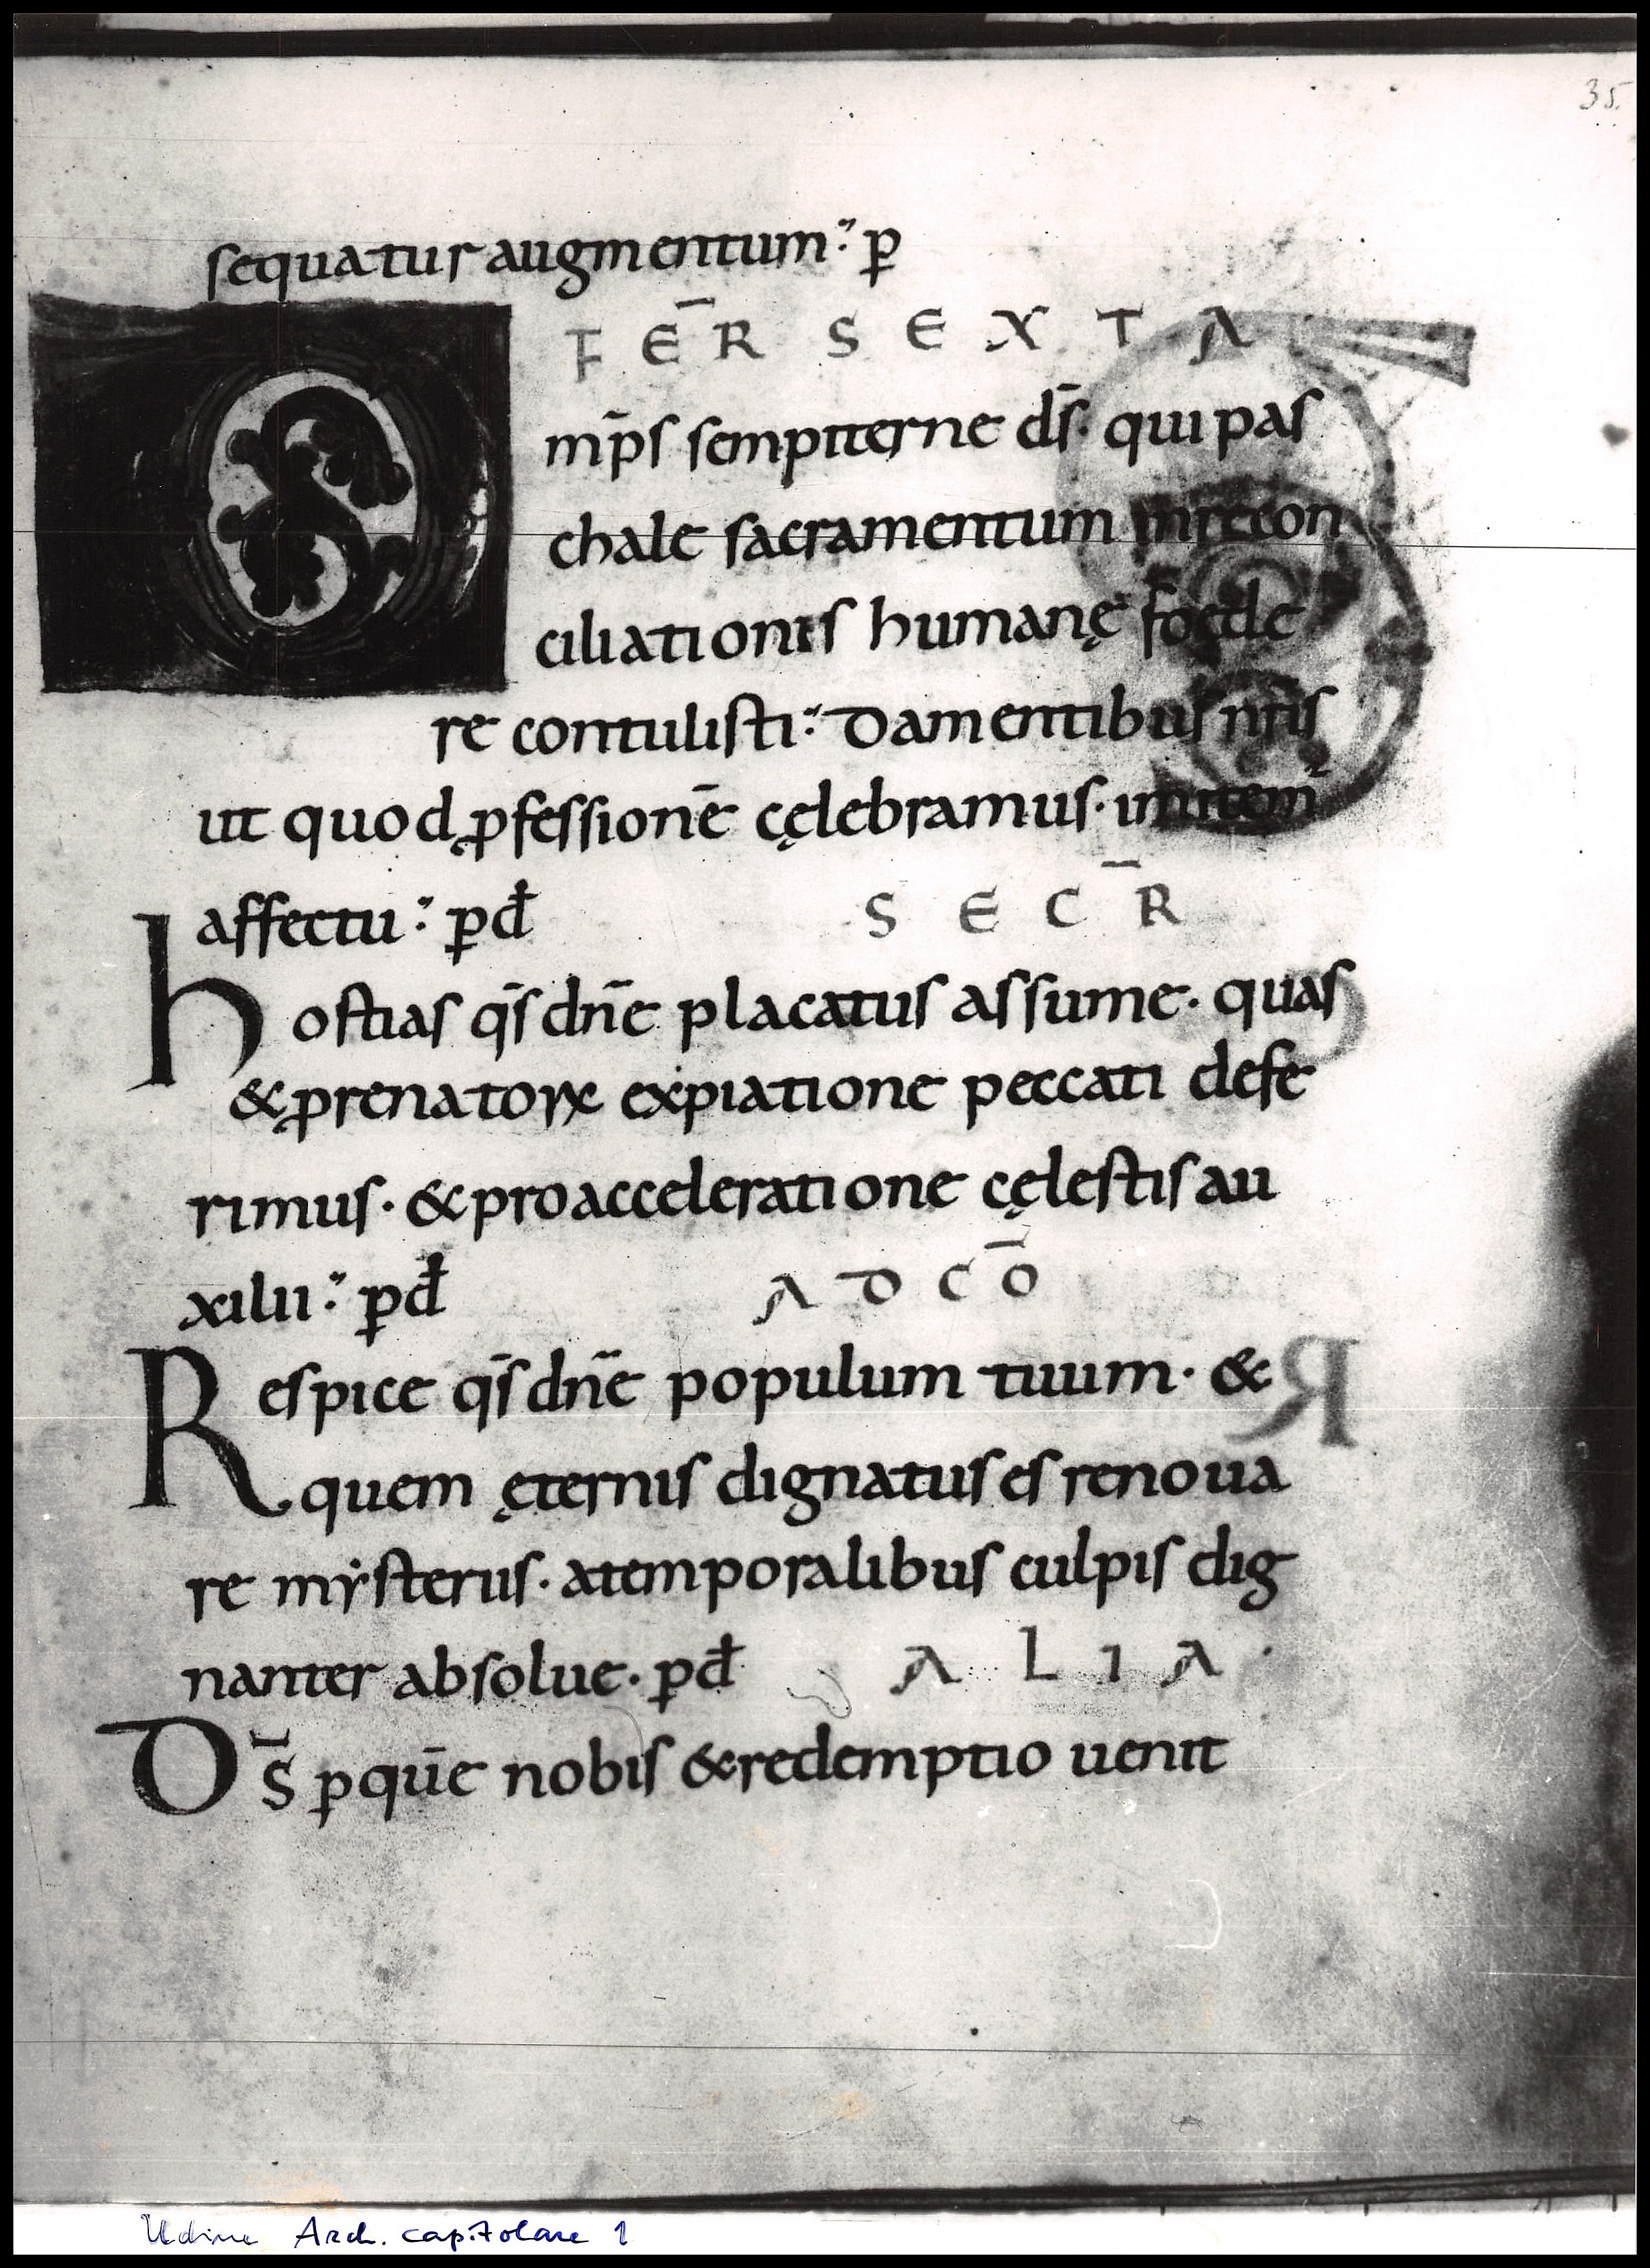 35.
sequatur augmentum. p̄
FER̄ SEXTA
O
mp̄s sempiterne dſ̄. qui pas
chale sacramentum inrecon
ciliationis humanę foede
re contulisti. Da mentibus nr̄is
ut quod ꝓfessionē cęlebramus. imitem̄
affectu. pđ
SECR̄
hostias qs̄ dn̄e placatus assume. quas
& ꝓrenatorꝝ expiatione peccati defe
rimus. & pro acceleratione cęlestis au
xilii. pđ
AD CŌ
Respice qs̄ dn̄e populum tuum. &
quem ęternis dignatus es renoua
re mẏsteriis. a temporalibus culpis dig
nanter absolue. pđ
ALIA
Ds̄ p quē nobis & redemptio uenit
Udine Arch. capitolare 1